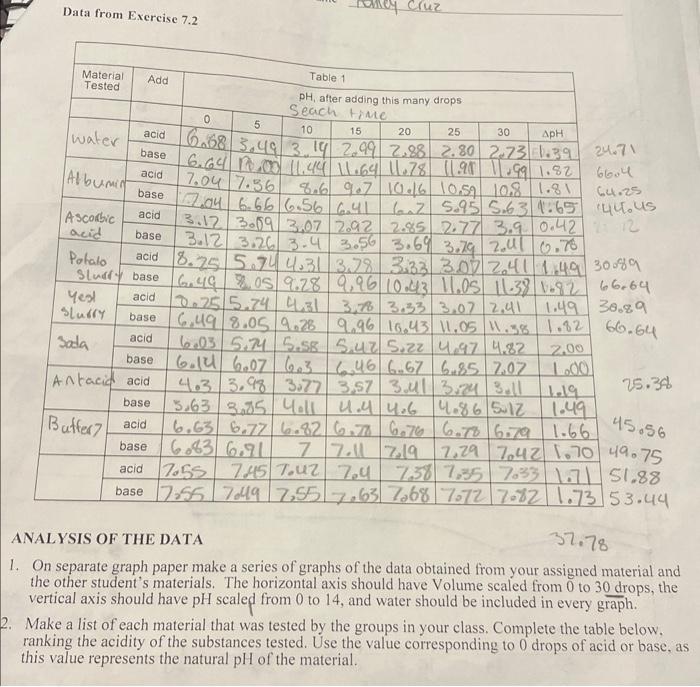 Cruz
Data from Exercise 7.2
Table 1
Material Tested Add pH, after adding this many drops
5 each time
0 5 10 15 20 25 30 ΔpH
water acid 6.68 3.49 3.19 2.99 2.88 2.80 2.73 1.39 24.71
base 6.64 11.44 11.64 11.78 11.91 11.99 1.82 66.4
Albumin acid 7.04 7.36 8.6 9.7 10.16 10.59 10.8 1.81 64.25
base 7.04 6.66 6.56 6.41 6.2 5.95 5.63 1.65 44.45
Ascorbic acid acid 3.12 3.09 3.07 2.92 2.85 2.77 3.9 0.42 12
base 3.12 3.26 3.4 3.56 3.69 3.79 2.41 0.78
Potato Slurry acid 8.25 5.74 4.31 3.78 3.33 3.07 2.41 1.49 30.89
base 6.49 8.05 9.28 9.96 10.43 11.05 11.38 1.82 66.64
Yest Slurry acid 8.25 5.74 4.31 3.78 3.33 3.07 2.41 1.49 30.89
base 6.49 8.05 9.28 9.96 10.43 11.05 11.38 1.82 66.64
Soda acid 6.03 5.74 5.58 5.42 5.22 4.97 4.82 2.00
base 6.14 6.07 6.3 6.46 6.67 6.85 7.07 1.00
Antacid acid 4.3 3.98 3.77 3.57 3.41 3.24 3.11 1.19 25.38
base 3.63 3.85 4.11 4.4 4.6 4.86 5.12 1.49
Buffer 7 acid 6.63 6.77 6.82 6.78 6.76 6.78 6.79 1.66 45.56
base 6.83 6.91 7 7.11 7.19 7.29 7.42 1.70 49.75
acid 7.55 7.45 7.42 7.4 7.38 7.35 7.33 1.71 51.88
base 7.55 7.49 7.55 7.63 7.68 7.72 7.82 1.73 53.44
37.78
ANALYSIS OF THE DATA
1. On separate graph paper make a series of graphs of the data obtained from your assigned material and
the other student's materials. The horizontal axis should have Volume scaled from 0 to 30 drops, the
vertical axis should have pH scaled from 0 to 14, and water should be included in every graph.
2. Make a list of each material that was tested by the groups in your class. Complete the table below,
ranking the acidity of the substances tested. Use the value corresponding to 0 drops of acid or base, as
this value represents the natural pH of the material.